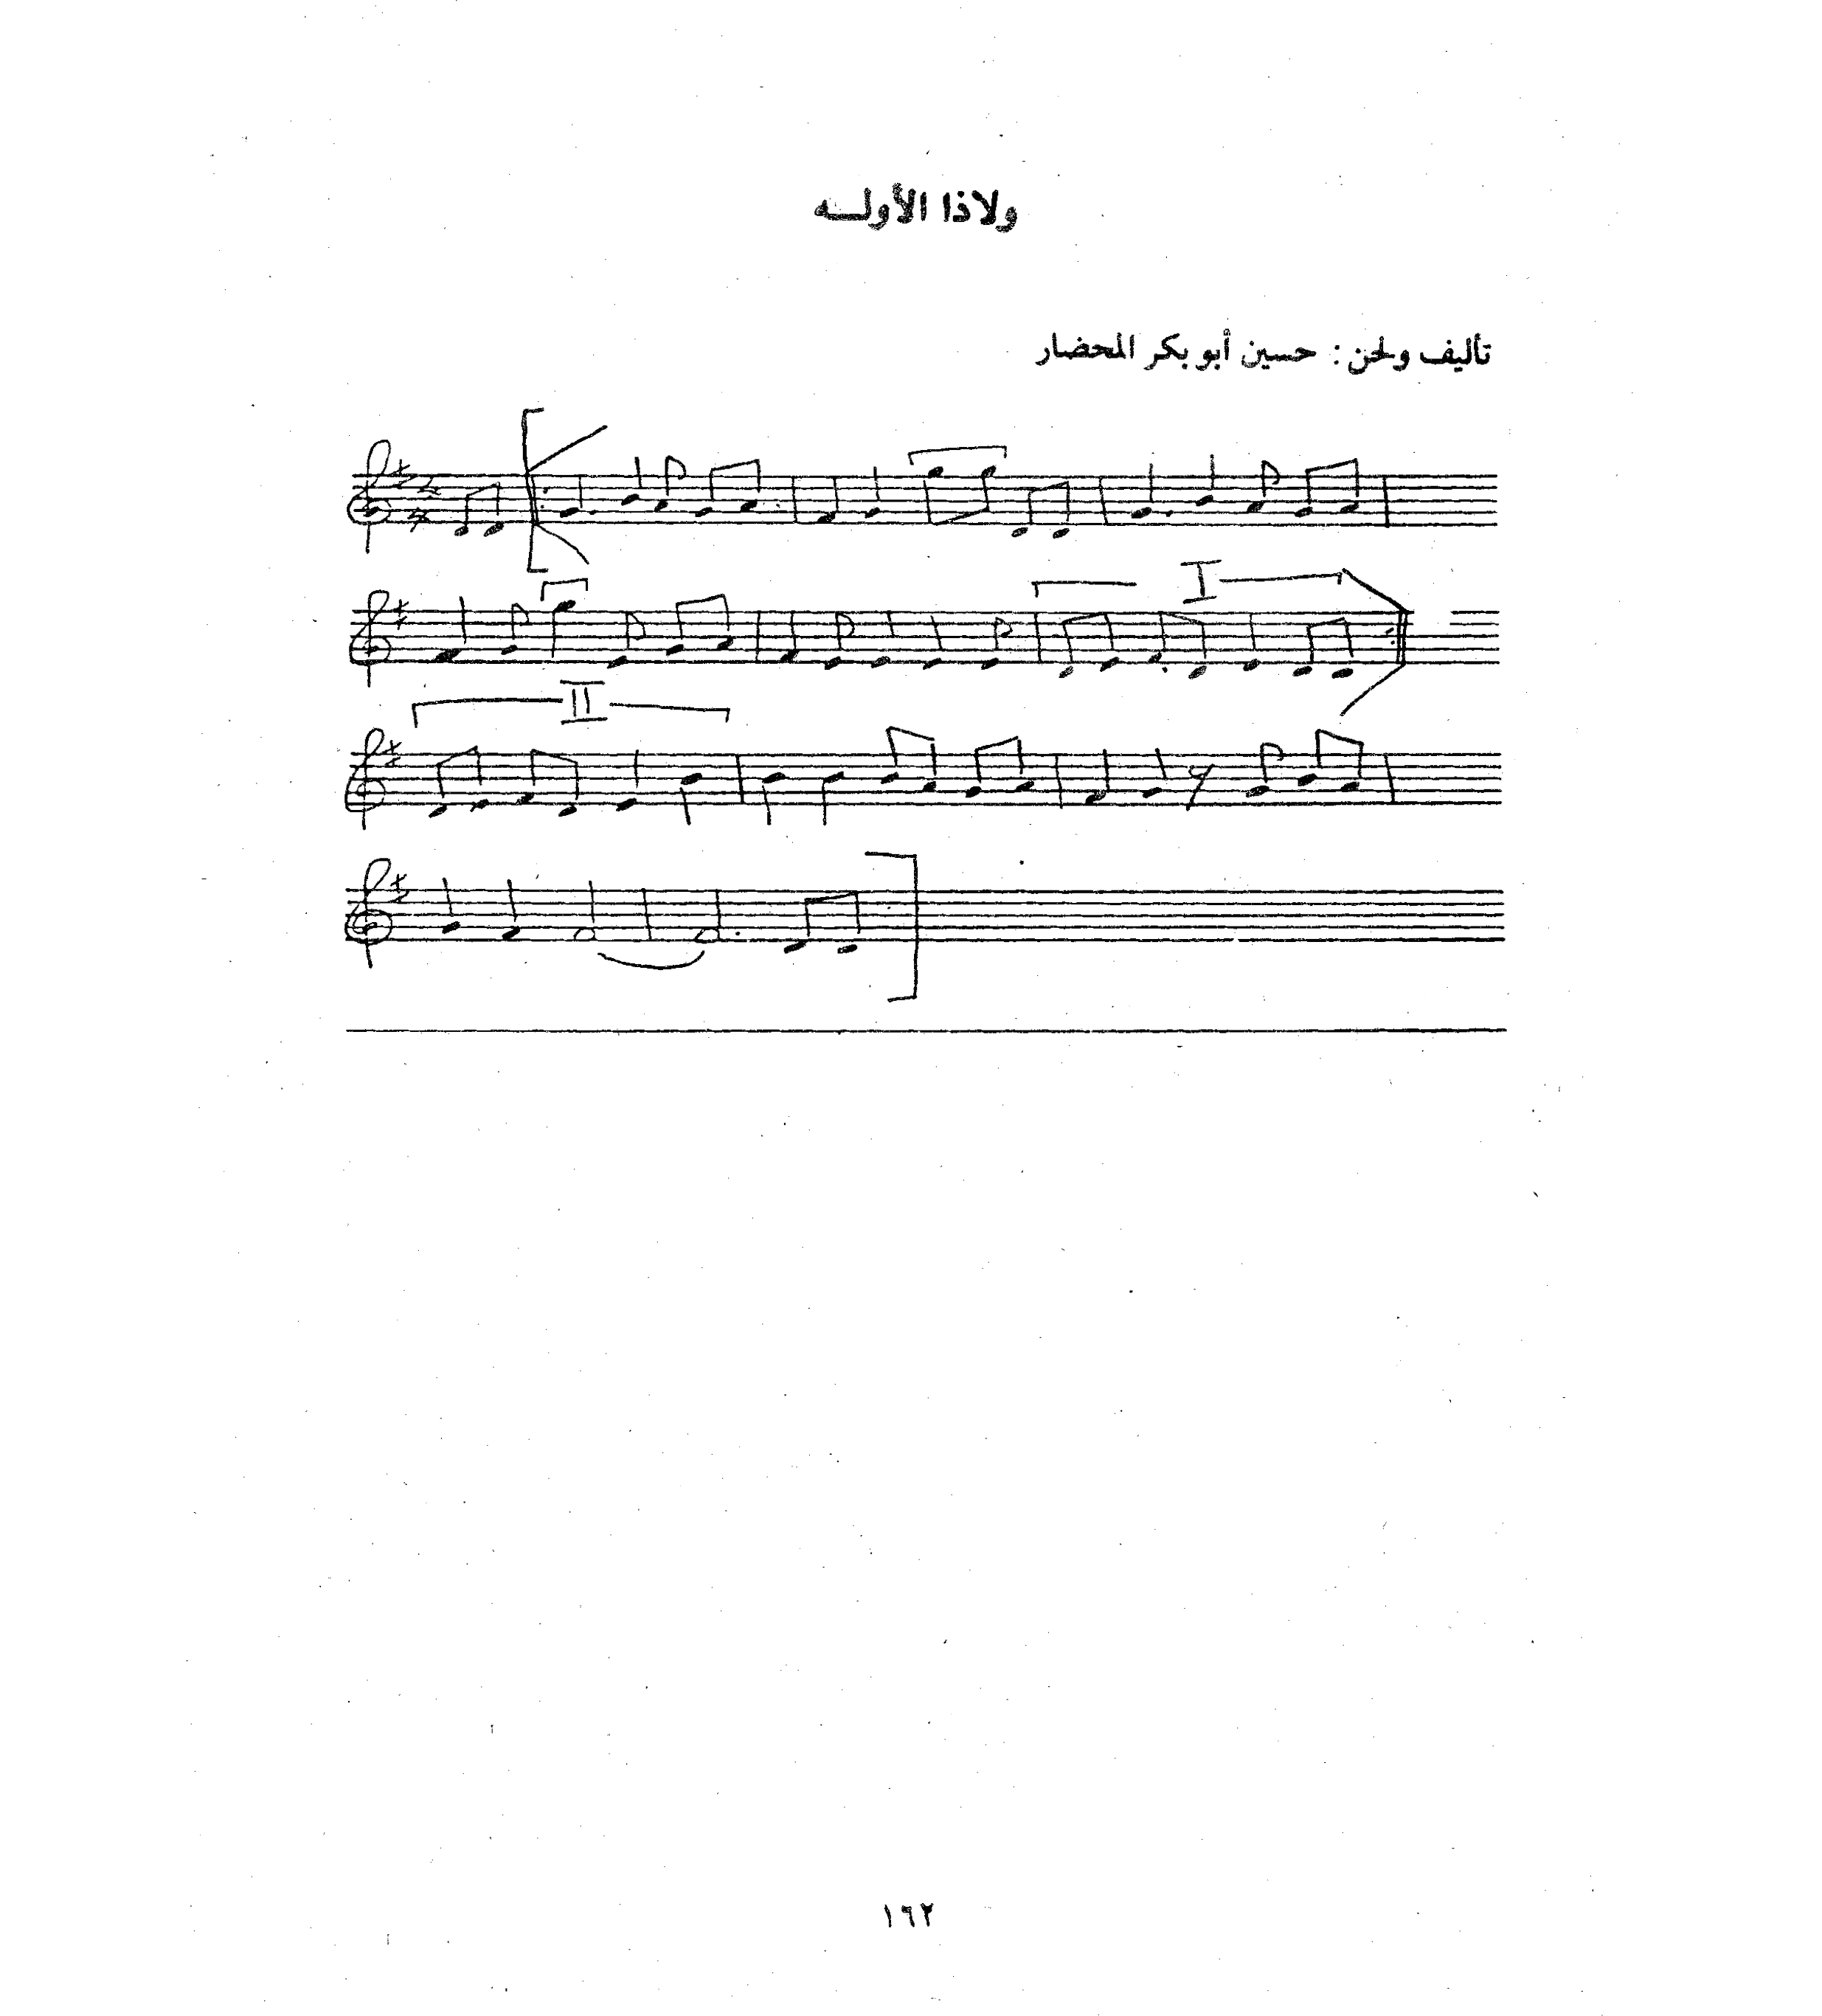 ولاذا الأولـــه
تأليف ولحن : حسين أبو بكر المحضار
I
II
١٦٢